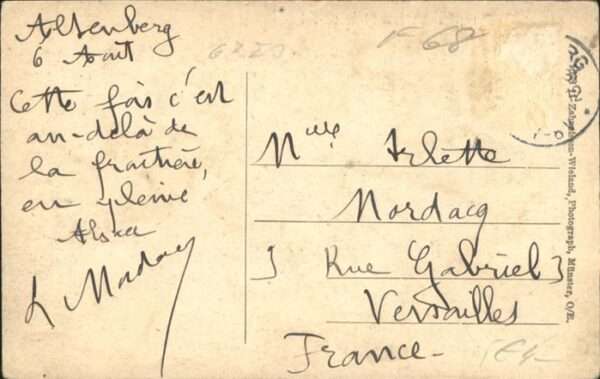 Altenberg
6 Aout
Cette fois c'est
au-delà de
la frontière,
en pleine
Alsace
L Mordacq
Mlle Arlette
Mordacq
3 Rue Gabriel 3
Versailles
France-
F 68
Wieland, Photograph, Münster, O/E.